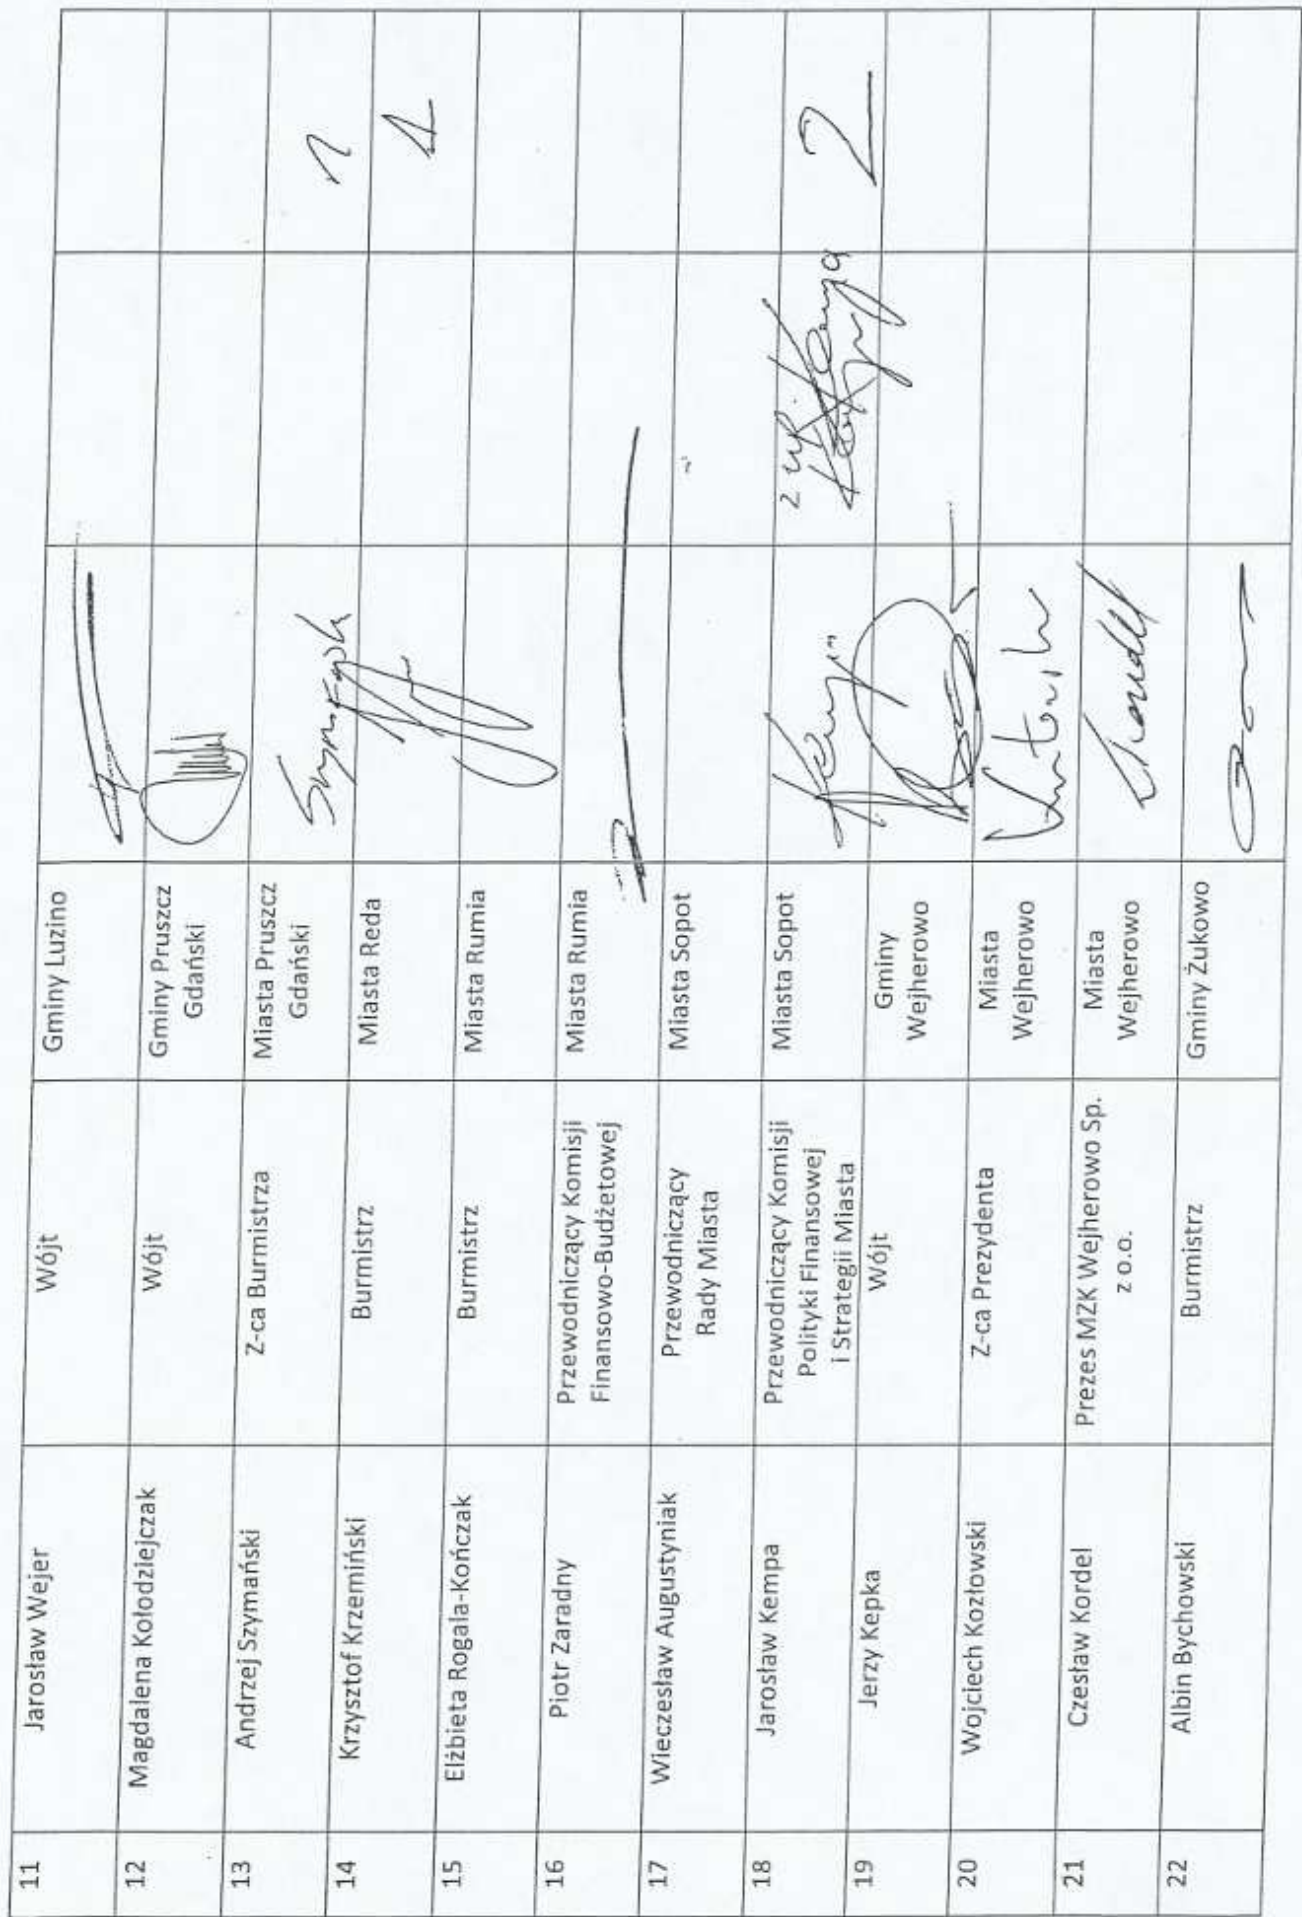 11 Jarosław Wejer Wójt Gminy Luzino
12 Magdalena Kołodziejczak Wójt Gminy Pruszcz
Gdański
13 Andrzej Szymański Z-ca Burmistrza Miasta Pruszcz
Gdański
Szymański 1
14 Krzysztof Krzemiński Burmistrz Miasta Reda 1
15 Elżbieta Rogala-Kończak Burmistrz Miasta Rumia
16 Piotr Zaradny Przewodniczący Komisji Miasta Rumia
Finansowo-Budżetowej
17 Wieczesław Augustyniak Przewodniczący Miasta Sopot
Rady Miasta
18 Jarosław Kempa Przewodniczący Komisji Miasta Sopot 2
Polityki Finansowej
i Strategii Miasta
19 Jerzy Kepka Wójt Gminy
Wejherowo
20 Wojciech Kozłowski Z-ca Prezydenta Miasta
Wejherowo
21 Czesław Kordel Prezes MZK Wejherowo Sp. Miasta
z o.o. Wejherowo
22 Albin Bychowski Burmistrz Gminy Żukowo